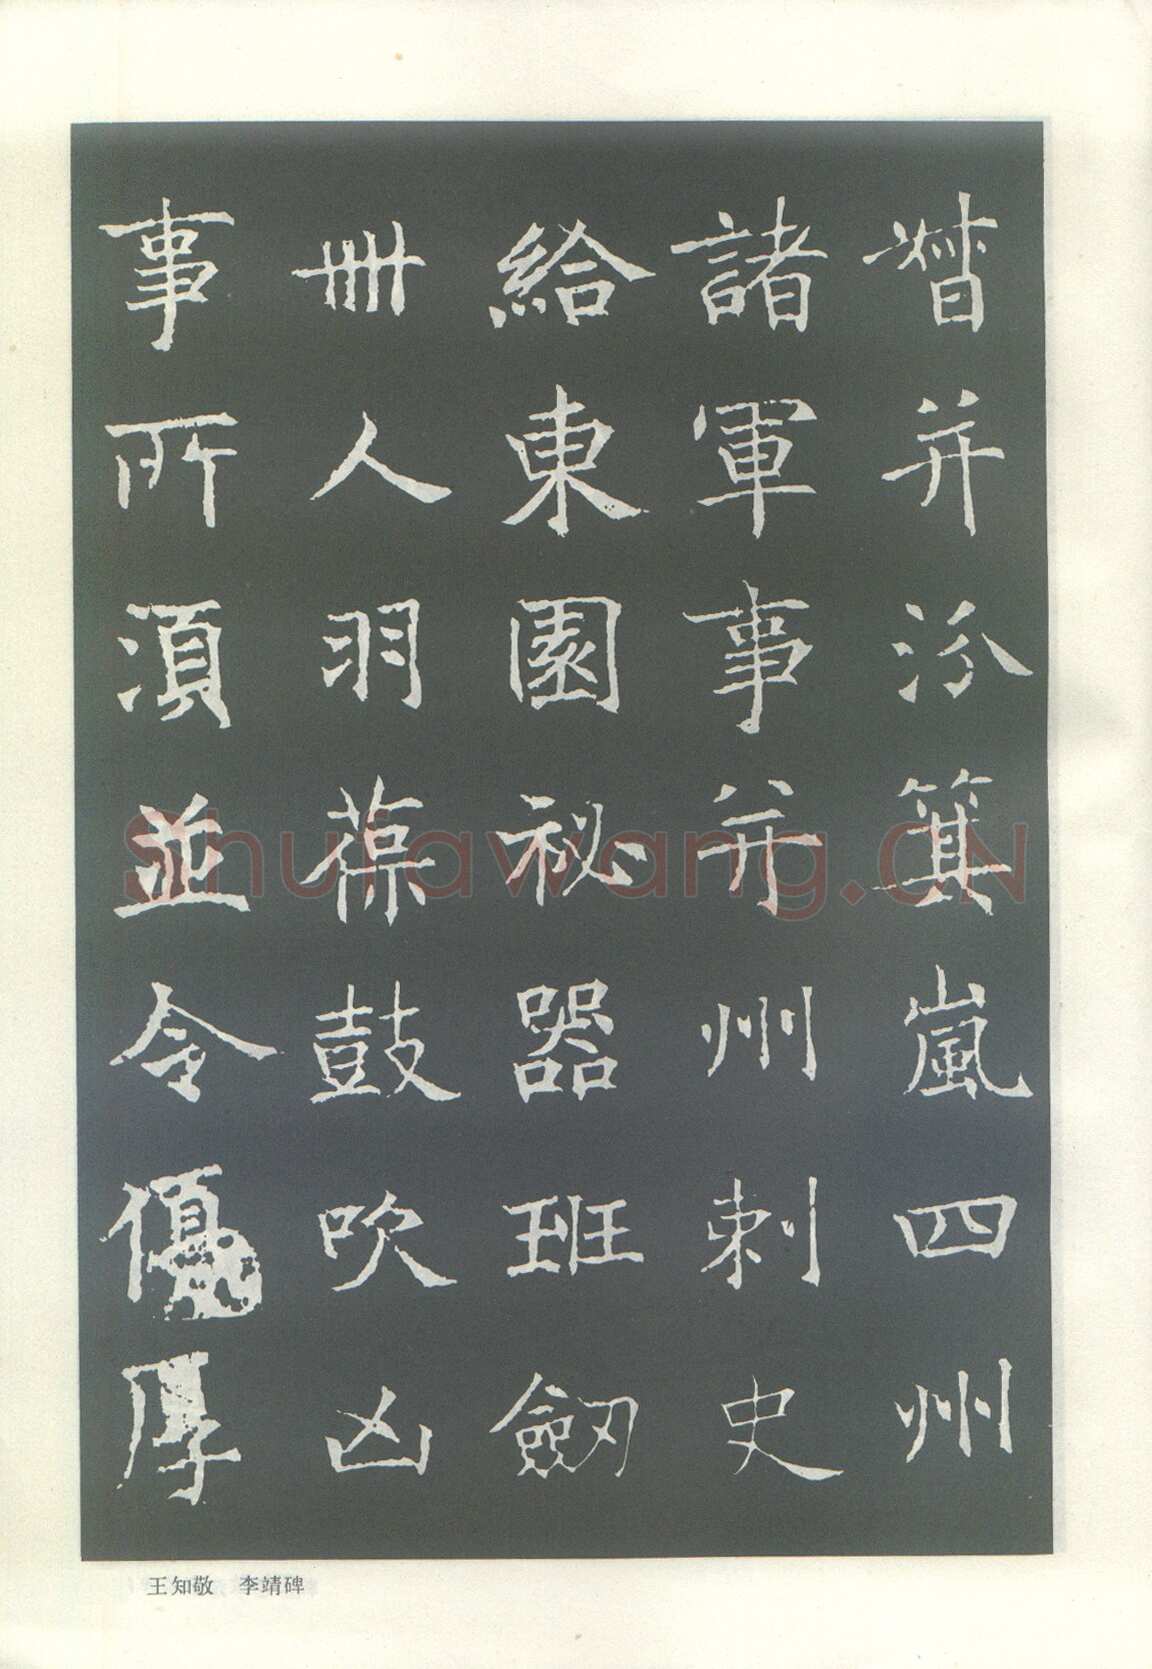 督并汾箕嵐四州
諸軍事并州刺史
給東園祕器班劒
卌人羽葆鼓吹凶
事所須並令優厚
王知敬 李靖碑
shufawang.CN